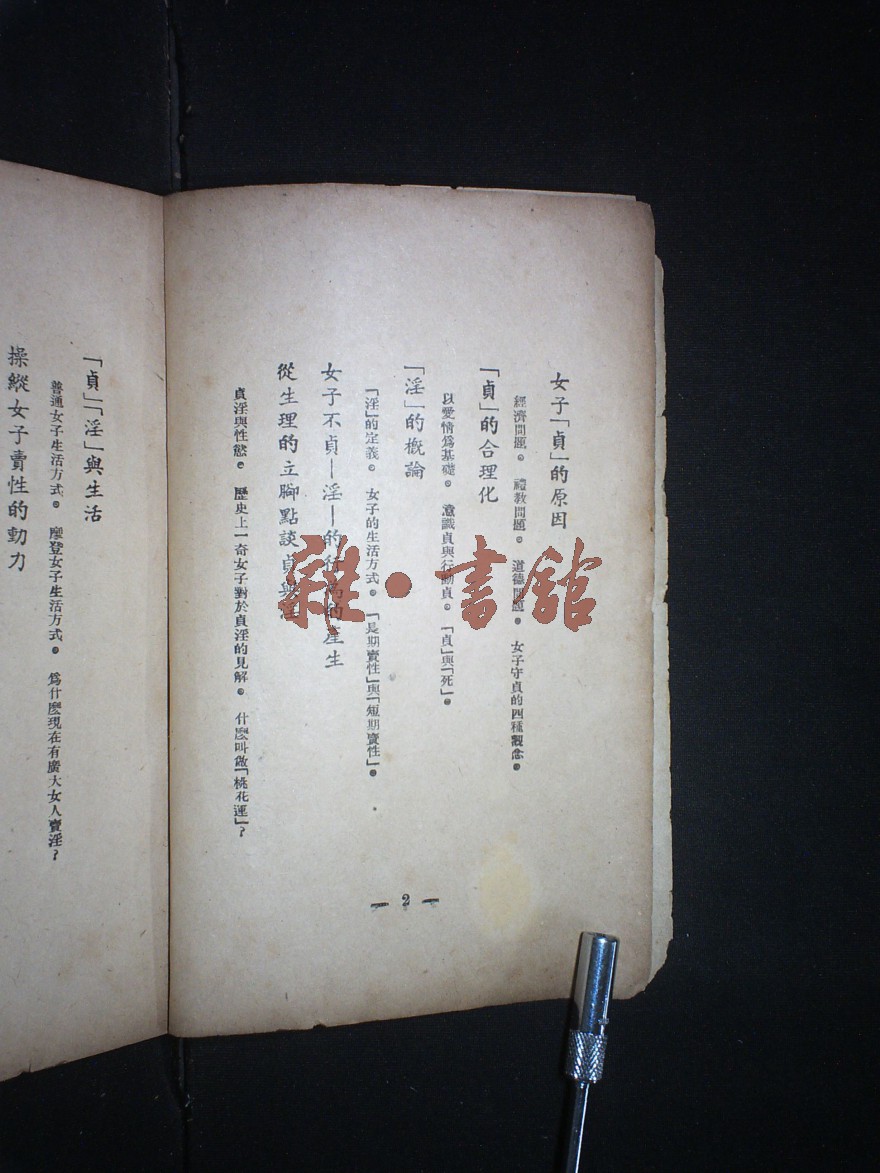 女子「貞」的原因
經濟問題。 禮教問題。 道德問題。 女子守貞的四種觀念。
「貞」的合理化
以愛情爲基礎。 意識貞與行動貞。 「貞」與「死」。
「淫」的概論
「淫」的定義。 女子的生活方式。 「長期賣性」與「短期賣性」。
女子不貞—淫—的行爲的產生
從生理的立腳點談貞與淫
貞淫與性慾。 歷史上一奇女子對於貞淫的見解。 什麼叫做「桃花運」？
— 2 —
「貞」「淫」與生活
普通女子生活方式。 摩登女子生活方式。 爲什麼現在有廣大女人賣淫？
操縱女子賣性的動力
雜·書舘